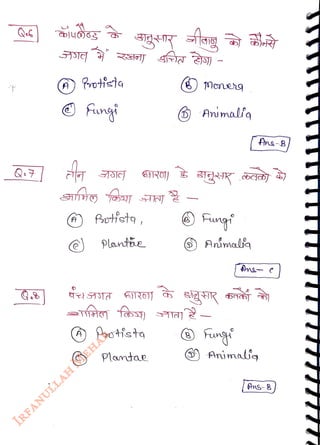 Q.6 कॉपलैण्ड के अनुसार जीवाणु को कौनसे
जगत में रखना उचित होगा -
Ⓐ Protista Ⓑ Monera
Ⓒ Fungi Ⓓ Animalia
Ans-B
Q.7 तीन जगत धारणा के अनुसार कवकों को
शामिल किया जाता है -
Ⓐ Protista, Ⓑ Fungi
Ⓒ Plantae Ⓓ Animalia
Ans- C
Q.8 पंच जगत धारणा के अनुसार कवकों को
शामिल किया जाता है -
Ⓐ Protista Ⓑ Fungi
Ⓒ Plantae Ⓓ Animalia
Ans-B
IRFANULLAH